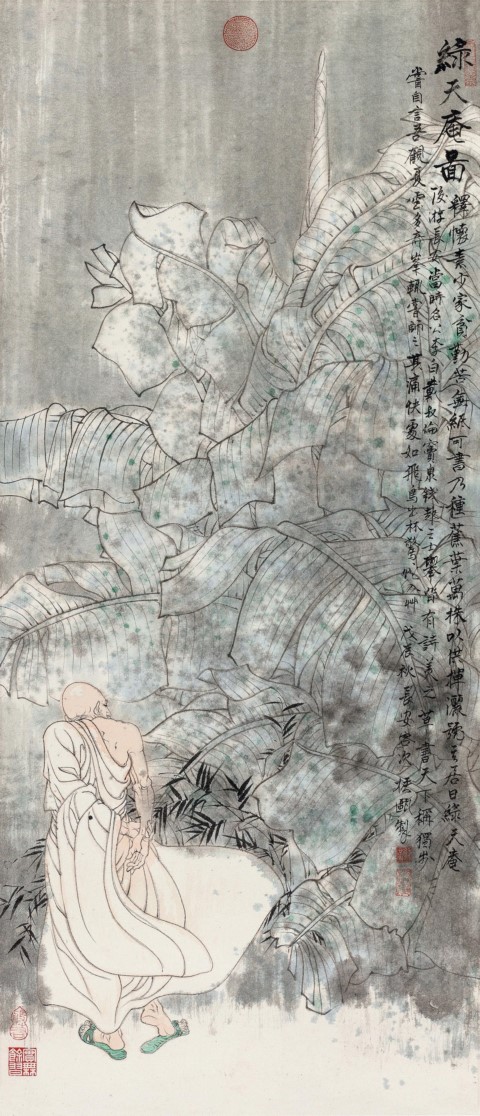 綠天庵圖
釋懷素少家貧勤苦無紙可書乃種蕉葉萬株以供揮灑號其居曰綠天庵
後游長安當時名公李白戴叔倫竇泉錢起之士舉皆有詩美之草書天下稱獨步
嘗自言吾觀夏雲多奇峰輒嘗師之其痛快處如飛鳥出林驚蛇入艸
戊辰秋長安客次製